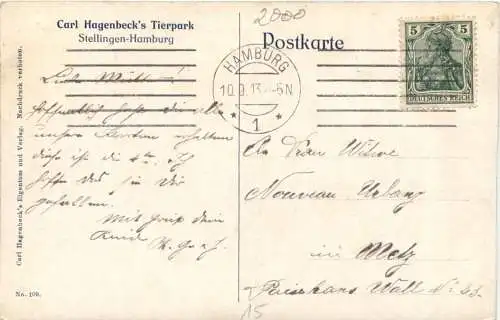 Carl Hagenbeck's Tierpark
Stellingen-Hamburg
2000
Postkarte
HAMBURG
10.9.13 -6N
* 1 *
5
DEUTSCHES REICH
Carl Hagenbeck's Eigentum und Verlag. Nachdruck verboten.
Liebe Mutter!
Hoffentlich hast die alle
unsere Karten erhalten
diese ist die 4te. Ich
hoffe das in dir
gefallen.
Mit Gruß dein
Kind
An Frau Witwe
Nouveau Urbany
in Metz
Wall No. 43
No. 109.
15